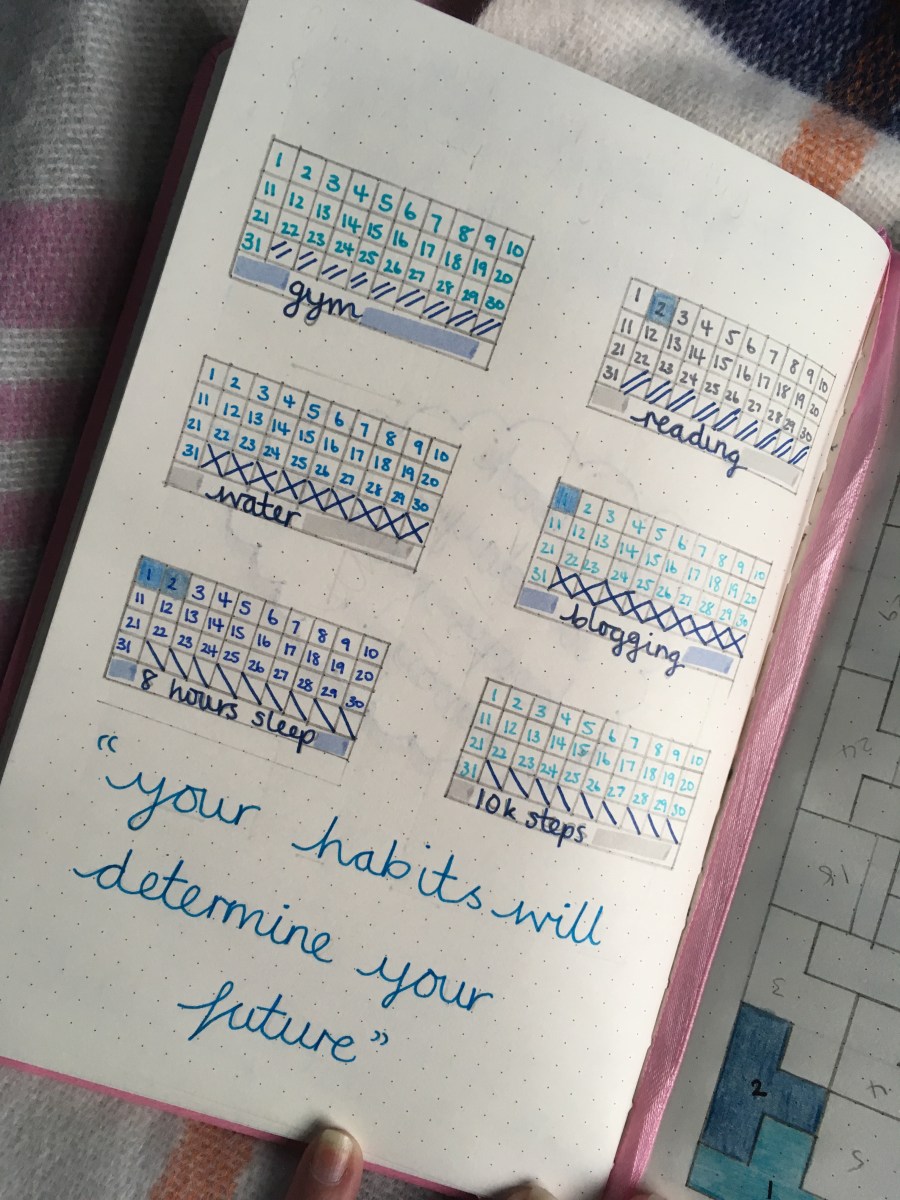 1 2 3 4 5 6 7 8 9 10
11 12 13 14 15 16 17 18 19 20
21 22 23 24 25 26 27 28 29 30
31
gym
1 2 3 4 5 6 7 8 9 10
11 12 13 14 15 16 17 18 19 20
21 22 23 24 25 26 27 28 29 30
31
reading
1 2 3 4 5 6 7 8 9 10
11 12 13 14 15 16 17 18 19 20
21 22 23 24 25 26 27 28 29 30
31
water
1 2 3 4 5 6 7 8 9 10
11 12 13 14 15 16 17 18 19 20
21 22 23 24 25 26 27 28 29 30
31
blogging
1 2 3 4 5 6 7 8 9 10
11 12 13 14 15 16 17 18 19 20
21 22 23 24 25 26 27 28 29 30
31
8 hours sleep
1 2 3 4 5 6 7 8 9 10
11 12 13 14 15 16 17 18 19 20
21 22 23 24 25 26 27 28 29 30
31
10k steps
“your habits will
determine your
future”
18
3
2
4
5
1